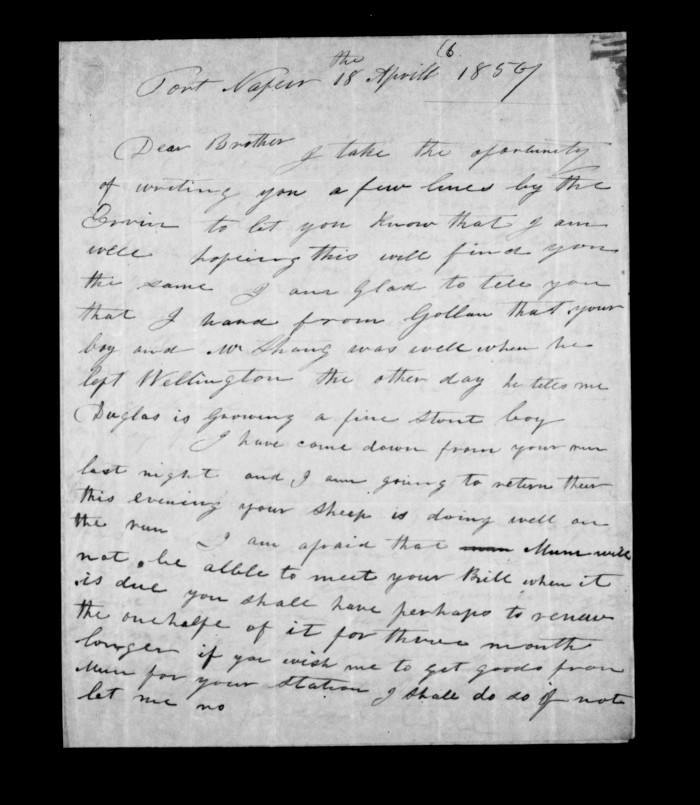 (6
Port Napeir the 18 Aprill 1857
Dear Brother I take the oportunity
of writing you a few lines by the
to let you Know that I am
well hopeing this will find you
the same I am Glad to tele you
that I hand from Gollan that your
boy and Mr Shang was well when he
left Wellington the other day he teles me
Duglas is growing a fine stout boy
I have come down from your run
last night and I am going to return their
this evening your sheep is doing well on
the run I am afraid that Mum will
not be allble to meet your Bill when it
is due you shall have perhaps to renew
the onehalfe of it for three month
longer if you wish me to get goods from
Mum for your station I shall do so if not
let me no